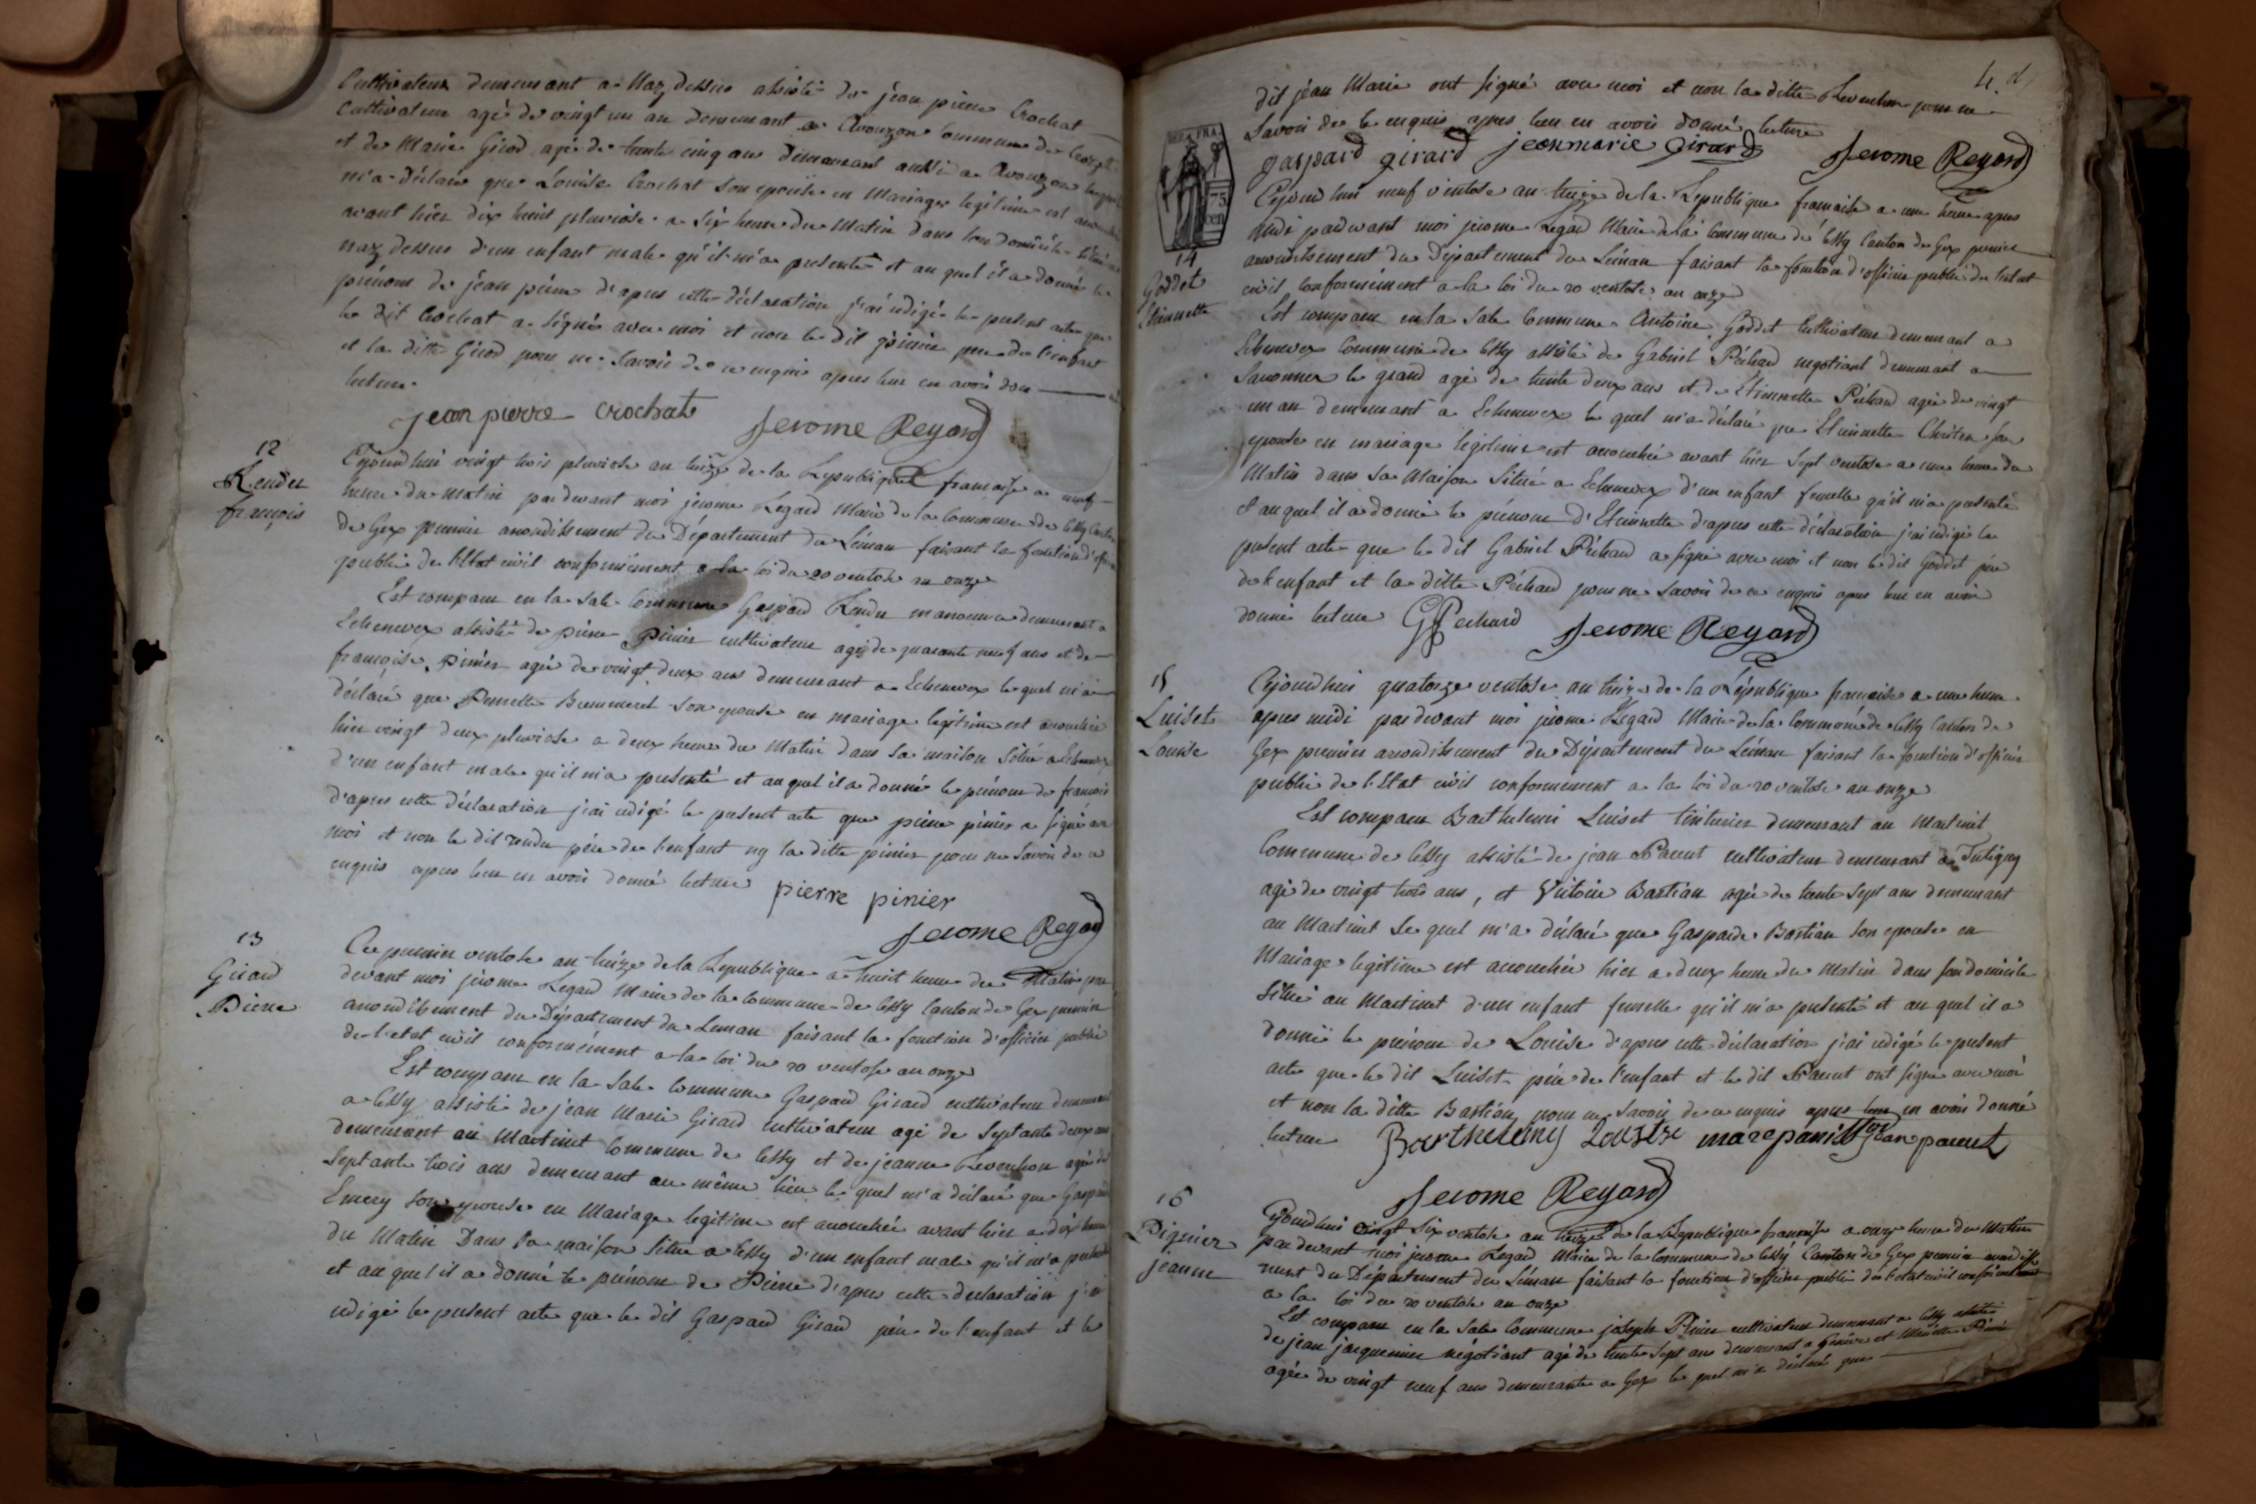 Cultivateur demeurant a Naz dessus assisté de jean pierre Crochat
Cultivateur agé de vingt un an demeurant a Avouzon Commune de Crozet
et de Marie Girod agé de trente cinq ans demeurant aussi a Avouzon lequel
m'a déclaré que Louise Crochat son epouse en Mariage legitime est accouchée
avant hier dix huit pluviose a six heure du Matin dans son domicile situé a
naz dessus d'un enfant male qu'il m'a presenté et au quel il a donné le
prénom de jean pierre d'apres cette déclaration j'ai rédigé le present acte que
le dit Crochat a signé avec moi et non le dit pinier pere de l'enfant
et la ditte Girod pour ne savoir de ce enquis apres leur en avoir don
lecture
jean pierre crochat Jerome Regard
12
Rendu
françois
Cejourdhui vingt trois pluviose an treize de la Republique française a neuf
heure du matin pardevant moi jerome Regard Maire de la Commune de Cessy Canton
de Gex premier arrondissement du Département du Léman faisant la fonction d'officier
public de l'Etat civil conformément a la loi du 20 ventose an onze
Est comparu en la sale Commune Gaspard Rendu manoeuvre demeurant a
Echenevex assisté de pierre pinier cultivateur agé de quarante neuf ans et de
françoise pinier agée de vingt deux ans demeurant a Echenevex lequel m'a
déclaré que Pernette son epouse en mariage legitime est accouchée
hier vingt deux pluviose a deux heure du Matin dans sa maison située a Echenevex
d'un enfant male qu'il m'a presenté et au quel il a donné le prénom de francois
d'apres cette déclaration j'ai rédigé le present acte que pierre pinier a signé avec
moi et non le dit rendu père de l'enfant ny la ditte pinier pour ne savoir de ce
enquis apres leur en avoir donné lecture pierre pinier
Jerome Regard
13
Girard
Pierre
Ce premier ventose an treize de la Republique a huit heure du Matin par
devant moi jerome Regard Maire de la Commune de Cessy Canton de Gex premier
arrondissement du Département du Leman faisant la fonction d'officier public
de l'etat civil conformément a la loi du 20 ventose an onze
Est comparu en la sale Commune Gaspard Girard cultivateur demeurant
a Cessy assisté de jean Marie Girard Cultivateur agé de septante deux ans
demeurant au Martinet Commune de Cessy et de jeanne Revenchon agée de
septante trois ans demeurant au même lieu le quel m'a déclaré que Gasparde
Emery son epouse en Mariage legitime est accouchée avant hier a dix heure
du Matin Dans sa maison située a Cessy d'un enfant male qu'il m'a presenté
et au quel il a donné le prénom de Pierre d'apres cette declaration j'ai
rédigé le present acte que le dit Gaspard Girard père de l'enfant et le
4
dit jean Marie ont signé avec moi et non la ditte Revenchon pour ne
savoir de ce enquis apres leur en avoir donné lecture
gaspard girard jeanmarie girard Jerome Regard
REP. FRA.
75
cen
14
Goddet
Etiennette
Cejourdhui neuf ventose an treize de la Republique francaise a une heure apres
midi pardevant moi jerome Regard Maire de la Commune de Cessy Canton de Gex premier
arrondissement du Département du Léman faisant la fonction d'officier public de l'etat
civil conformément a la loi du 20 ventose an onze
Est comparu en la sale Commune Antoine Goddet Cultivateur demeurant a
Echenevex Commune de Cessy assisté de Gabriel Péchard negotiant demeurant a
Sauvernex le grand agé de trente deux ans et de Etiennette Péchard agée de vingt
un an demeurant a Echenevex le quel m'a déclaré que Etiennette Chrêten sa
epouse en mariage legitime est accouchée avant hier sept ventose a une heure du
Matin dans sa Maison située a Echenevex d'un enfant femelle qu'il m'a presenté
et au quel il a donné le prénom d'Etiennette d'apres cette déclaration j'ai rédigé le
present acte que le dit Gabriel Péchard a signé avec moi et non le dit Goddet père
de l'enfant et la ditte Péchard pour ne savoir de ce enquis apres leur en avoir
donné lecture G Pechard Jerome Regard
15
Luiset
Louise
Cejourdhui quatorze ventose an treize de la République française a une heure
apres midi pardevant moi jerome Regard Maire de la Commune de Cessy Canton de
Gex premier arrondissement du Département du Léman faisant la fonction d'officier
public de l'Etat civil conformément a la loi du 20 ventose an onze
Est comparu Barthelemi Luiset teinturier demeurant au Martinet
Commune de Cessy assisté de jean Parent cultivateur demeurant a Tutigny
agé de vingt trois ans, et Victoire Bastian agée de trente sept ans demeurant
au Martinet le quel m'a déclaré que Gasparde Bastian son epouse en
Mariage legitime est accouchée hier a deux heure du matin dans son domicile
situé au Martinet d'un enfant femelle qu'il m'a presenté et au quel il a
donné le prénom de Louise d'apres cette déclaration j'ai rédigé le present
acte que le dit Luiset père de l'enfant et le dit Parent ont signé avec moi
et non la ditte Bastian pour ne savoir de ce enquis apres leur en avoir donné
lecture Barthelemy jean parent
Jerome Regard
16
Pignier
jeanne
Cejourdhui vingt six ventose an treize de la Republique française a onze heure du Matin
par devant moi jerome Regard Maire de la Commune de Cessy Canton de Gex premier arrondisse
ment du Département du Léman faisant la fonction d'officier public de l'etat civil conformément
a la loi du 20 ventose an onze
Est comparu en la sale Commune joseph Pinier cultivateur demeurant a Cessy assisté
de jean jacquenier négotiant agé de trente sept ans demeurant a Genève et
agée de vingt neuf ans demeurante a Gex le quel m'a déclaré que